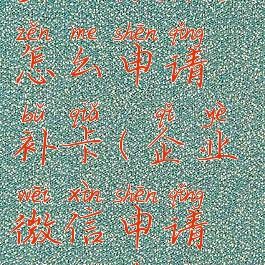 zěn me shēn qǐng
怎么申请
bǔ qiǎ qǐ yè
补卡(企业
wēi xìn shēn qǐng
微信申请